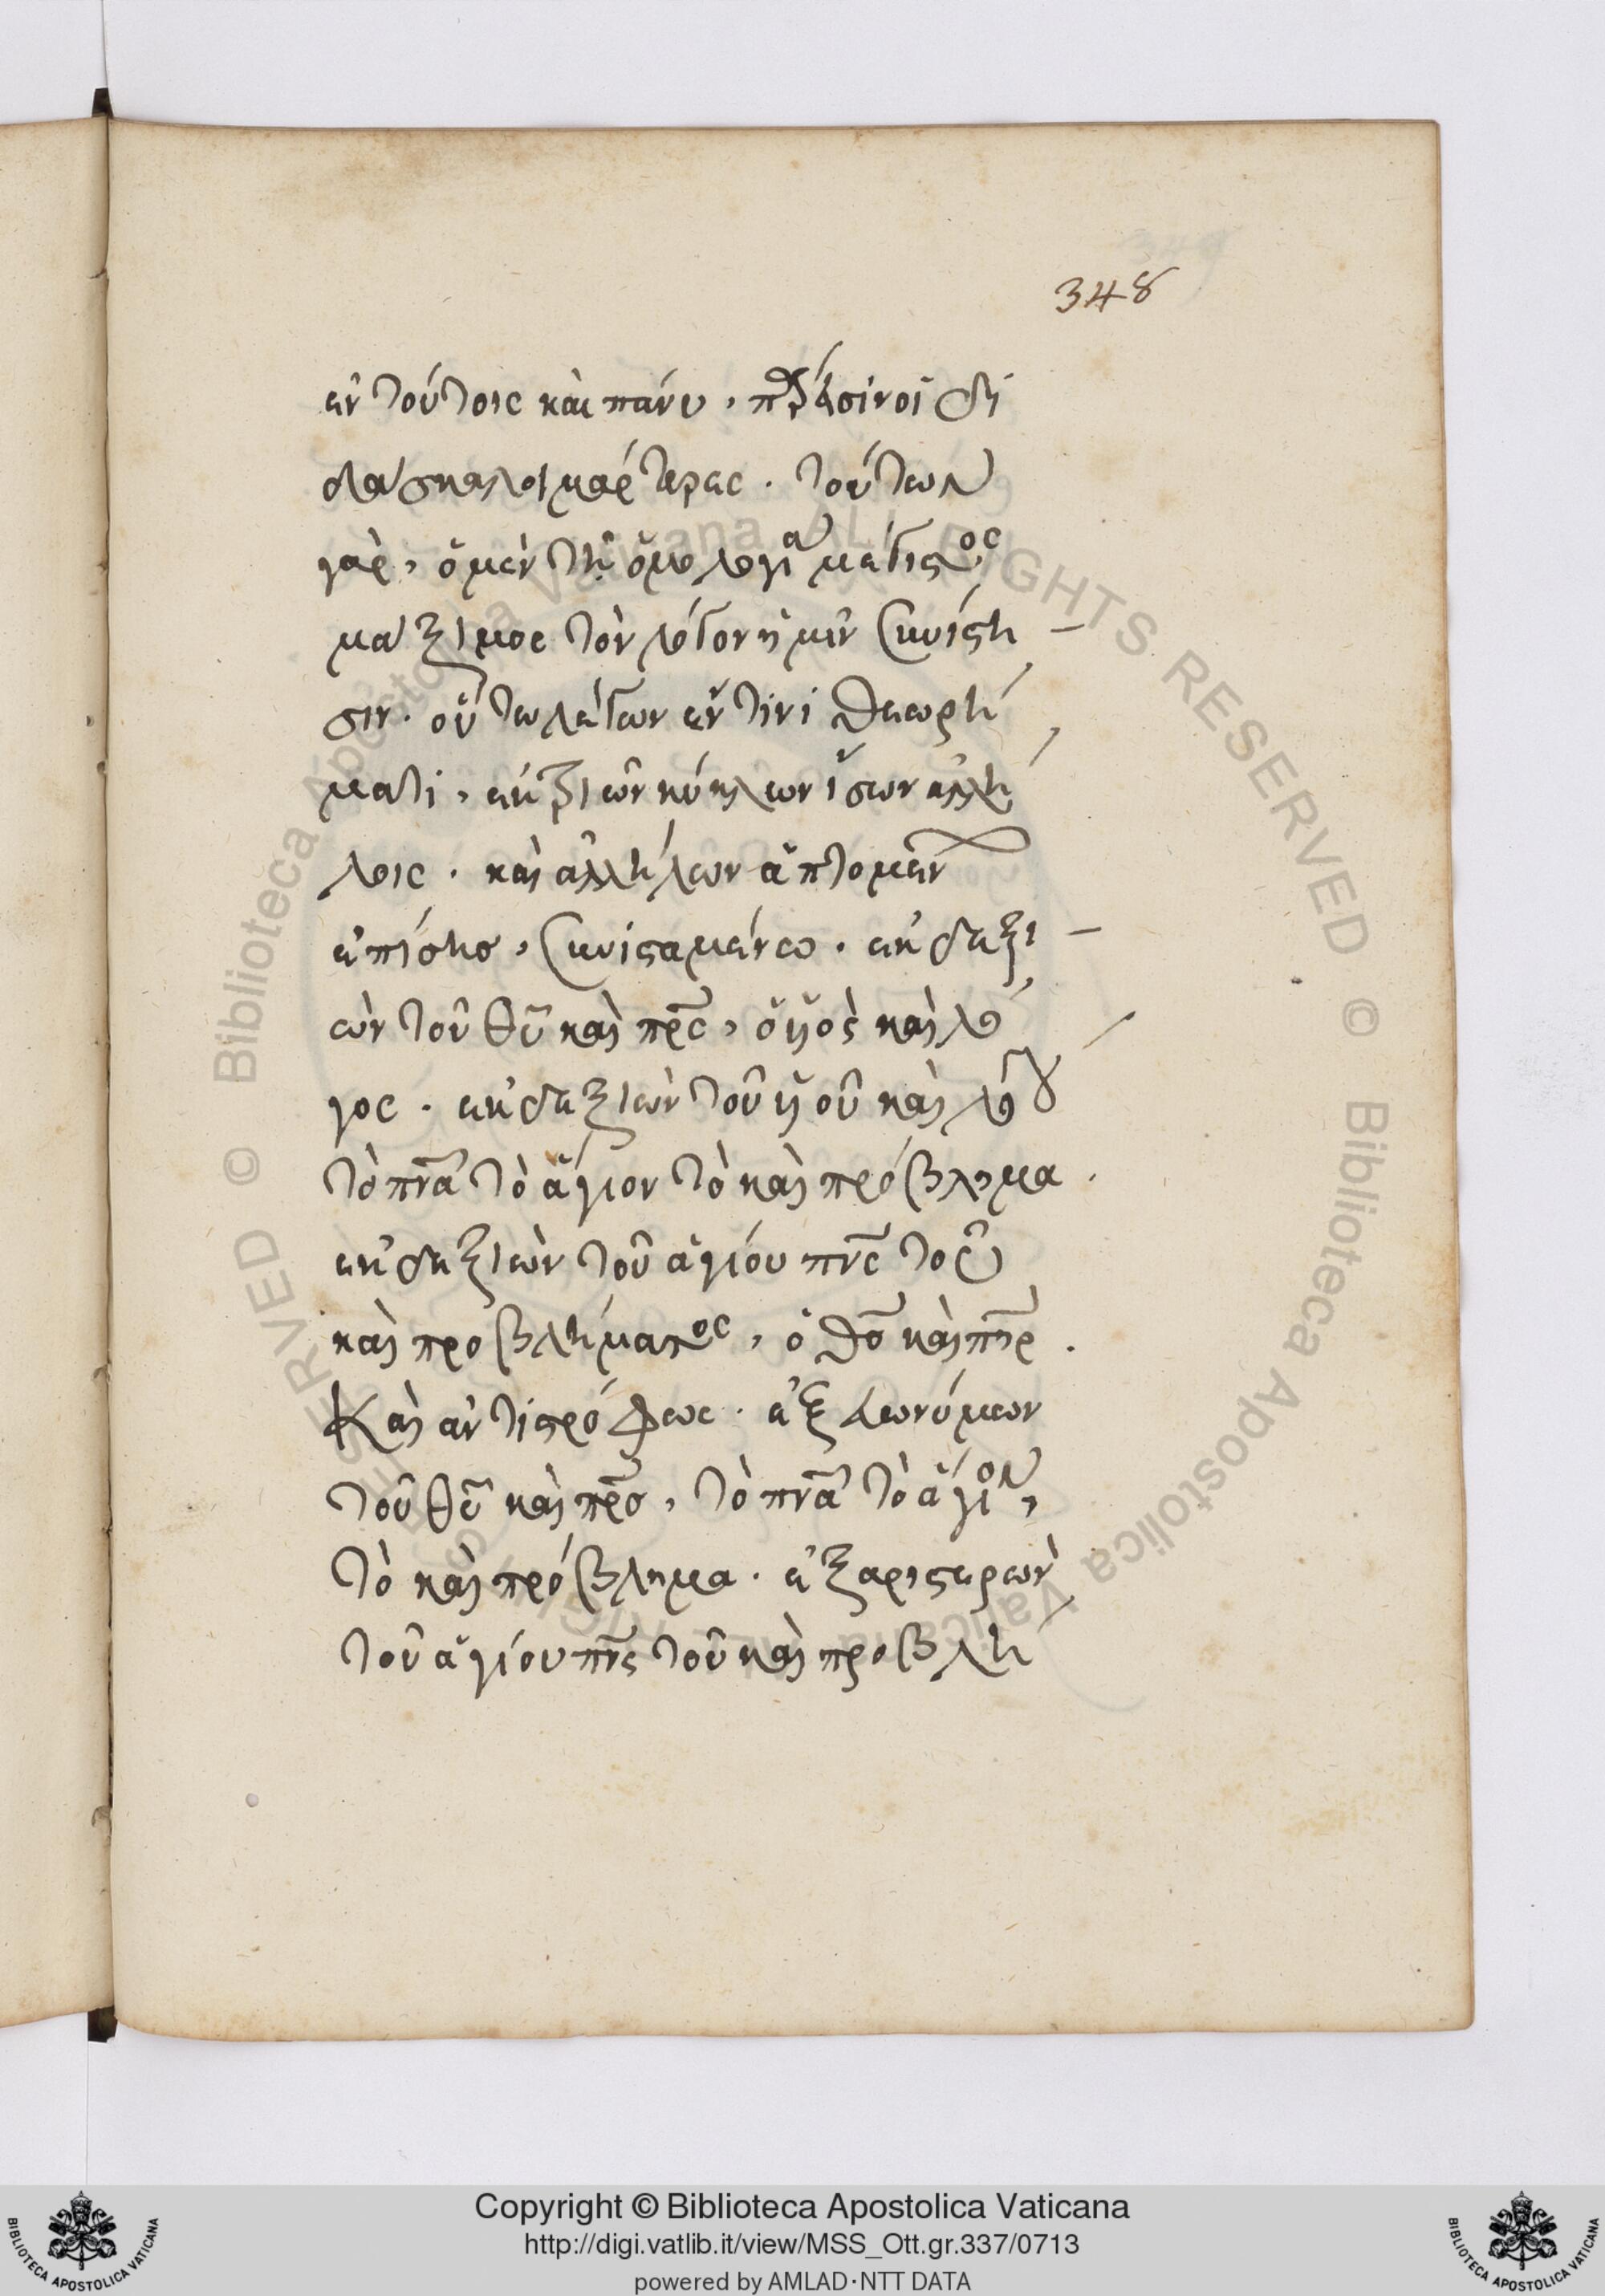 348
ἐν τούτοις καὶ πάνυ, πρ̅άσινοϊ δι
δάσκαλοι μάρτυρες. τούτων
γὰρ, ὁ μὲν τὴν ὁμολογίαν μέγιστος
μάξιμος τὸν λόγον ἡμῖν συνίστη
σιν. οὕτω λέγων ἔν τινι θεωρή
ματι, ἐκ τριῶν κύκλων ἴσων ἀλλή
λοις. καὶ ἀλλήλων ἁπτομένων
ἐπίσης, συνισταμένω. ἐκ δεξι
ῶν τοῦ θυ̅ καὶ πρ̅ς, ὁ ὑιὸς καὶ λό
γος. ἐκ δεξιῶν τοῦ ὑιοῦ καὶ λόγου
τὸ πν̅α τὸ ἅγιον τὸ καὶ πρόβλημα.
ἐκ δεξιῶν τοῦ ἁγίου πν̅ς τοῦ
καὶ προβλήματος, ὁ θσ̅ καὶ πη̅ρ.
Καὶ ἀντιστρόφως. ἐξ εὐωνύμων
τοῦ θυ̅ καὶ πρ̅σ, τὸ πν̅α τὸ ἅγιον,
τὸ καὶ πρόβλημα. ἐξ ἀριστερῶν
τοῦ ἁγίου πν̅ς τοῦ καὶ προβλή
Copyright © Biblioteca Apostolica Vaticana
http://digi.vatlib.it/view/MSS_Ott.gr.337/0713
powered by AMLAD·NTT DATA
BIBLIOTECA APOSTOLICA VATICANA
BIBLIOTECA APOSTOLICA VATICANA
© Biblioteca Apostolica Vaticana ALL RIGHTS RESERVED © Biblioteca Apostolica Vaticana ALL RIGHTS RESERVED